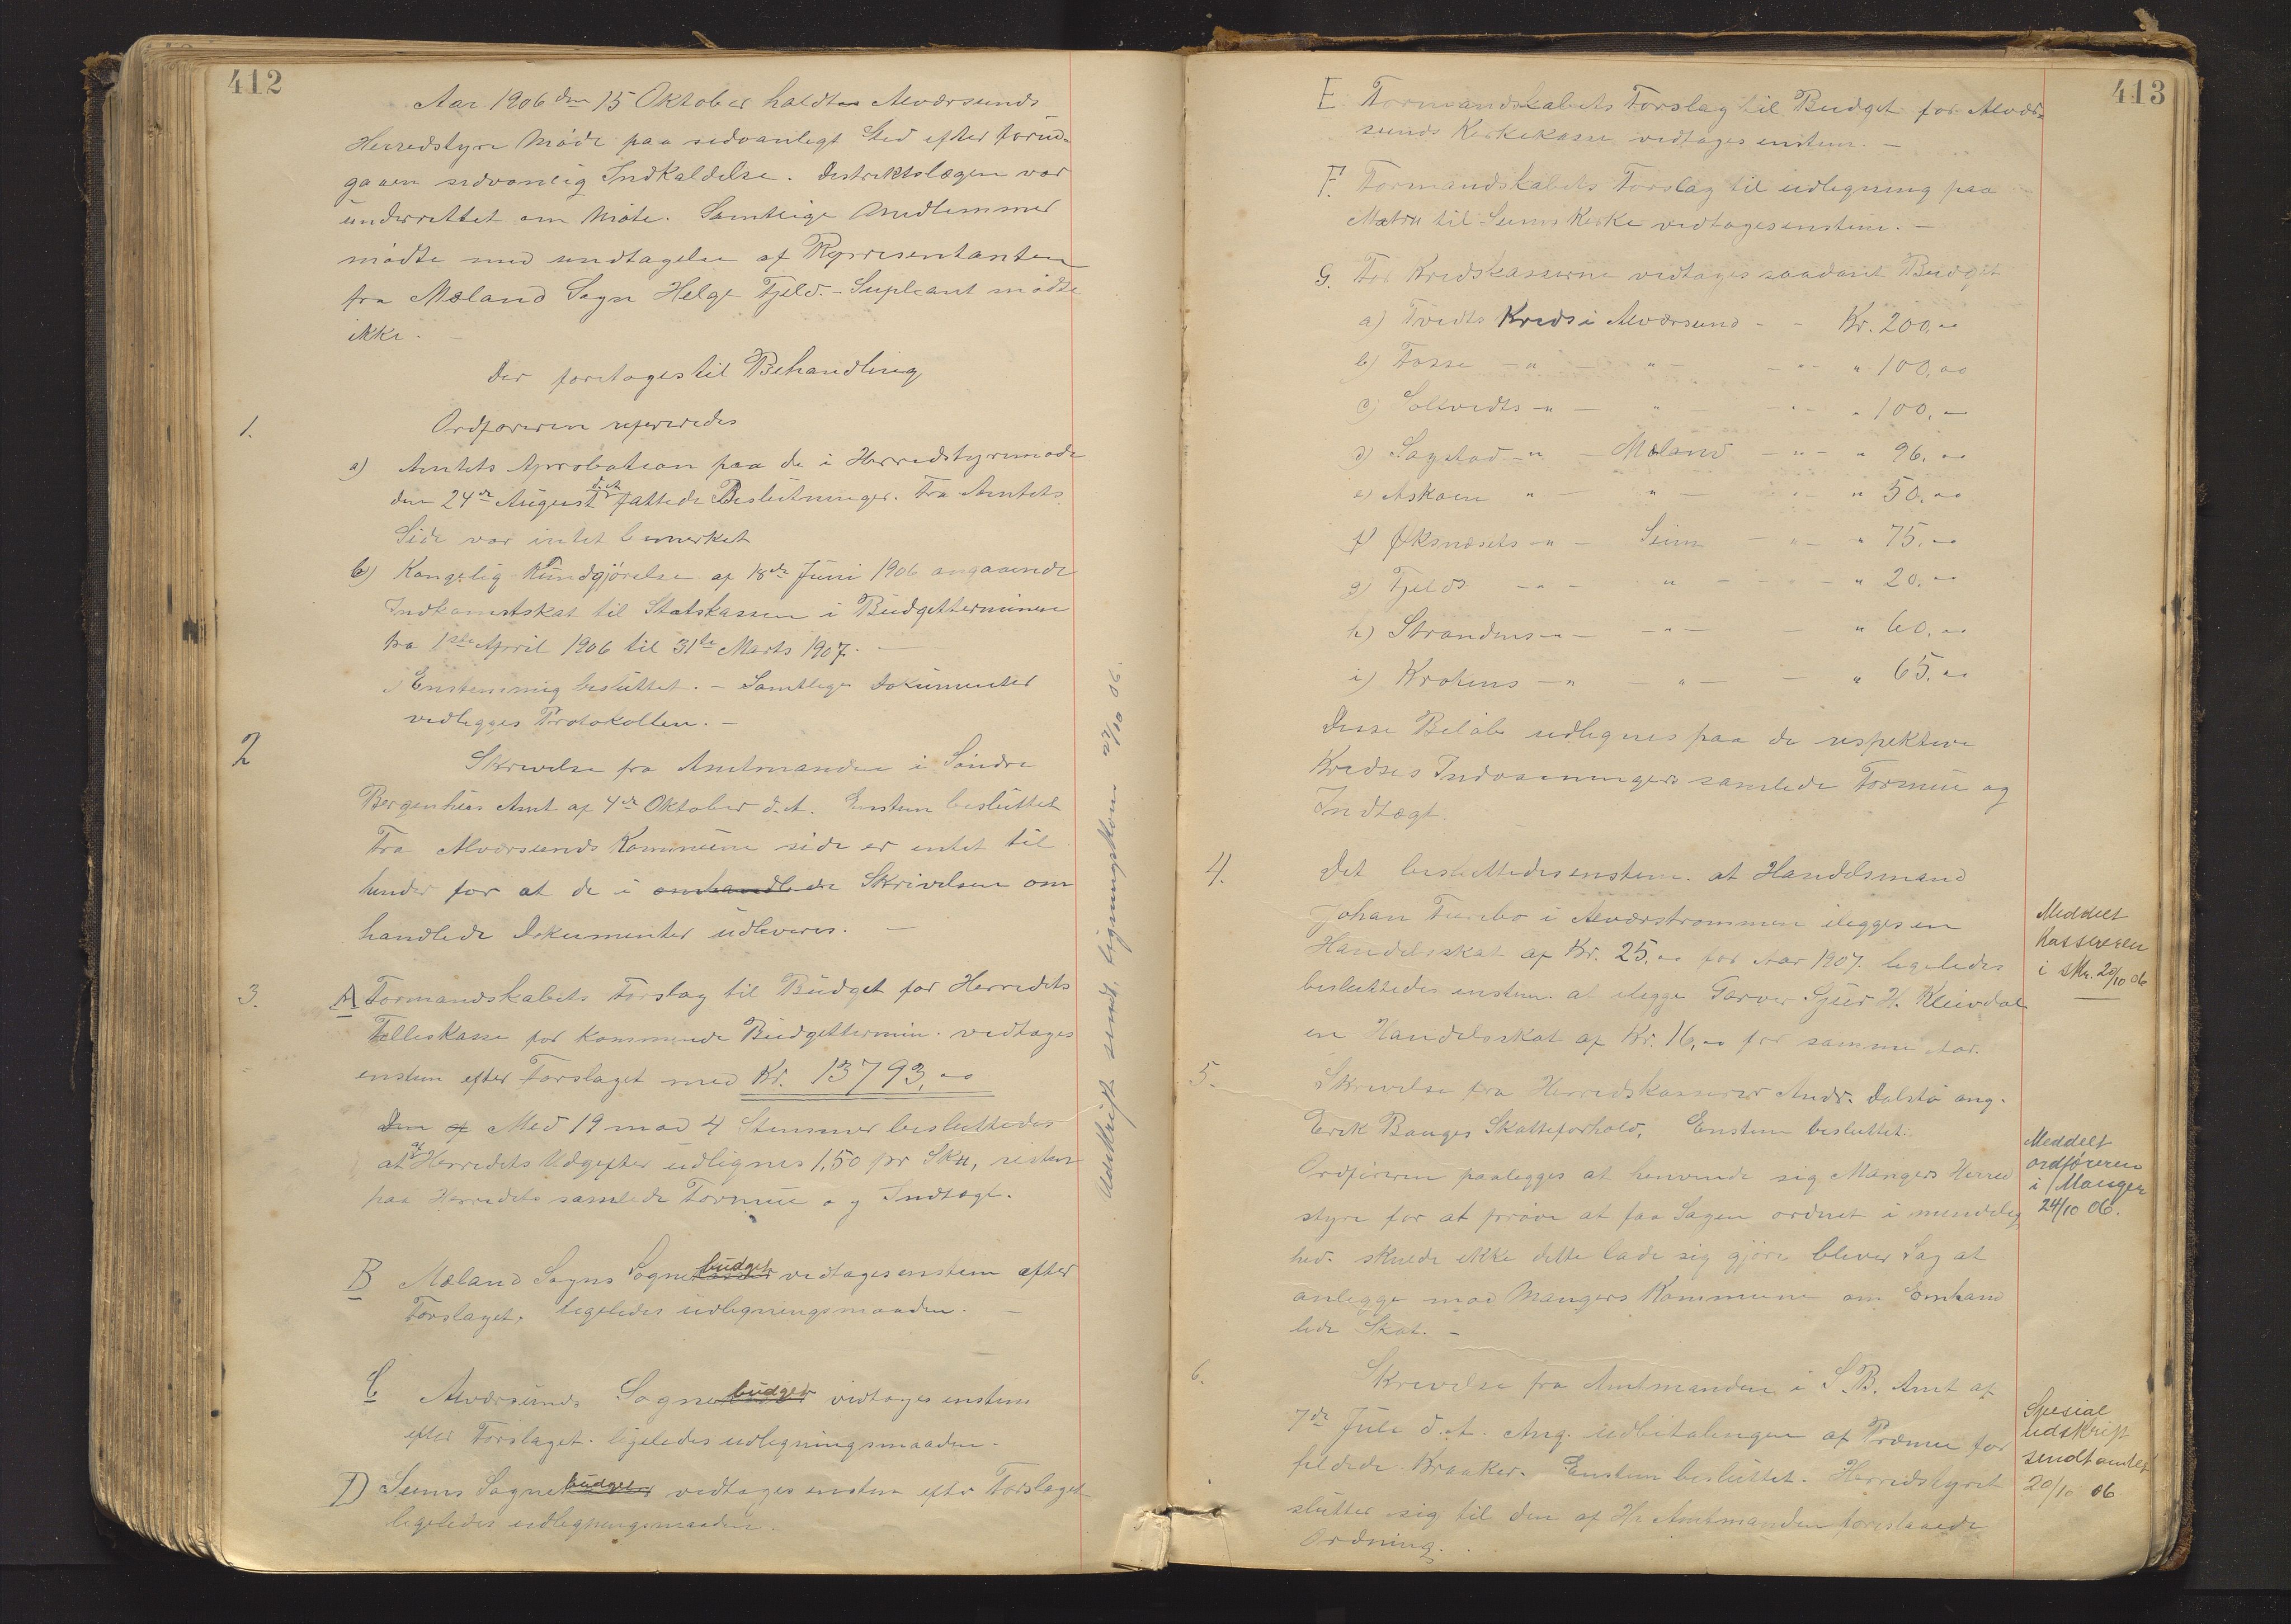 412
Aar 1906 den 15 Oktober holdtes Alværsunds
Herredstyre Møde paa sedvanligt Sted efter forud-
gaaen sedvanlig Indkaldelse. Distriktslægen var
underrettet om Møte. Samtlige Medlemmer
mødte med undtagelse af Representanten
fra Mæland Sogn Helge Fjeld. - Supleant mødte
ikke.
Der foretoges til Behandling
1.
Ordføreren refereredes
a) Amtets Aprobation paa de i Herredstyremøde
den 24de August d. A. fattede Beslutninger. Fra Amtets
Side var intet bemerket
b) Kongelig Kundgjørelse af 18de Juni 1906 angaaende
Indkomstskat til Statskassen i Budgetterminen
fra 1ste April 1906 til 31te Marts 1907. -
Enstemmig besluttet. - Samtlige Dokumenter
vedlegges Protokollen. -
2
Skrivelse fra Amtmanden i Søndre
Bergenhus Amt af 4de Oktober d. A. Enstem besluttet
Fra Alværsunds Kommune side er entet til
hinder for at de i omhandlede Skrivelsen om
handlede Dokumenter udleveres. -
3.
A Formandskabets Forslag til Budget for Herredets
Felleskasse for kommende Budgettermin. vedtages
enstem efter Forslaget med Kr. 13793,00
Den af Med 19 mod 4 Stemmer besluttedes
at af Herredets Udgifter udlignes 1,50 pr Sku, resten
paa Herredets samlede Formue og Indtægt.
B Mæland Sogns Sognebudget vedtages enstem efter
Forslaget. ligeledes udlegningsmaaden. -
C Alværsunds Sognebudget vedtages enstem
efter Forslaget. ligeledes udlegningsmaaden.
D Seims Sognebudget vedtages enstem efter Forslaget
ligeledes udlegningsmaaden.
Udskrift sendt. Ligningskom 22/10 06.
413
E Formandskabets Forslag til Budget for Alvær-
sunds Kirkekasse vedtages enstem. -
F. Formandskabets Forslag til udlegning paa
Matrn til Seims Kirke vedtages enstem. -
G. For Kredskasserne vedtages saadant Budget
a) Tvedts Kreds i Alværsund - - Kr. 200,00
b) Fosse - " - " - - " - " 100,00
c) Soltvedts - " - " - - " - " 100,-
d) Sagstad - " - Mæland - " - " 96,00
e) Askaen " - " - - " - " 50,00
f) Øksnæsets - " - Seim - " - " 75,00
g) Fjelds - " - " - - " - " 20,00
h) Strandens - " - - " - - " 60,00
i) Krossens - " - " - - " 65,00
Disse Beløb udlignes paa de respektive
Kredses Indvaaningers samlede Formue og
Indtægt.
4.
Det besluttedes enstem. at Handelsmand
Johan i Alværstrømmen ilegges en
Handelsskat af Kr. 25,00 for Aar 1907. ligeledes
besluttedes enstem. at ilegge Garver Sjur H. Kleivdal
en Handelsskat af Kr. 16,00 for samme Aar.
Meddelt
Kassereren
i Skr. 20/10 06
5.
Skrivelse fra Herredskasserer Andr. Dalstø ang.
Erik Bauges Skatteforhold, Enstem besluttet:
Ordføreren paalegges at henvende sig Mangers Herred
styre for at prøve at faa Sagen ordnet i mindelig
hed. skulde ikke dette lade sig gjøre bliver Sag at
anlegge mod Mangers Kommune om Omhand
lede Skat. -
Meddelt
ordføreren
i Manger
24/10 06.
6.
Skrivelse fra Amtmanden i S. B. Amt af
7de Juli d. A. Ang. udbetalingen af Præmie for
feldede Kraaker. Enstem besluttet. Herredstyret
slutter sig til den af Hr Amtmanden foreslaaede
Ordning.
Spesial
udskrift
sendt amtet
20/10 06